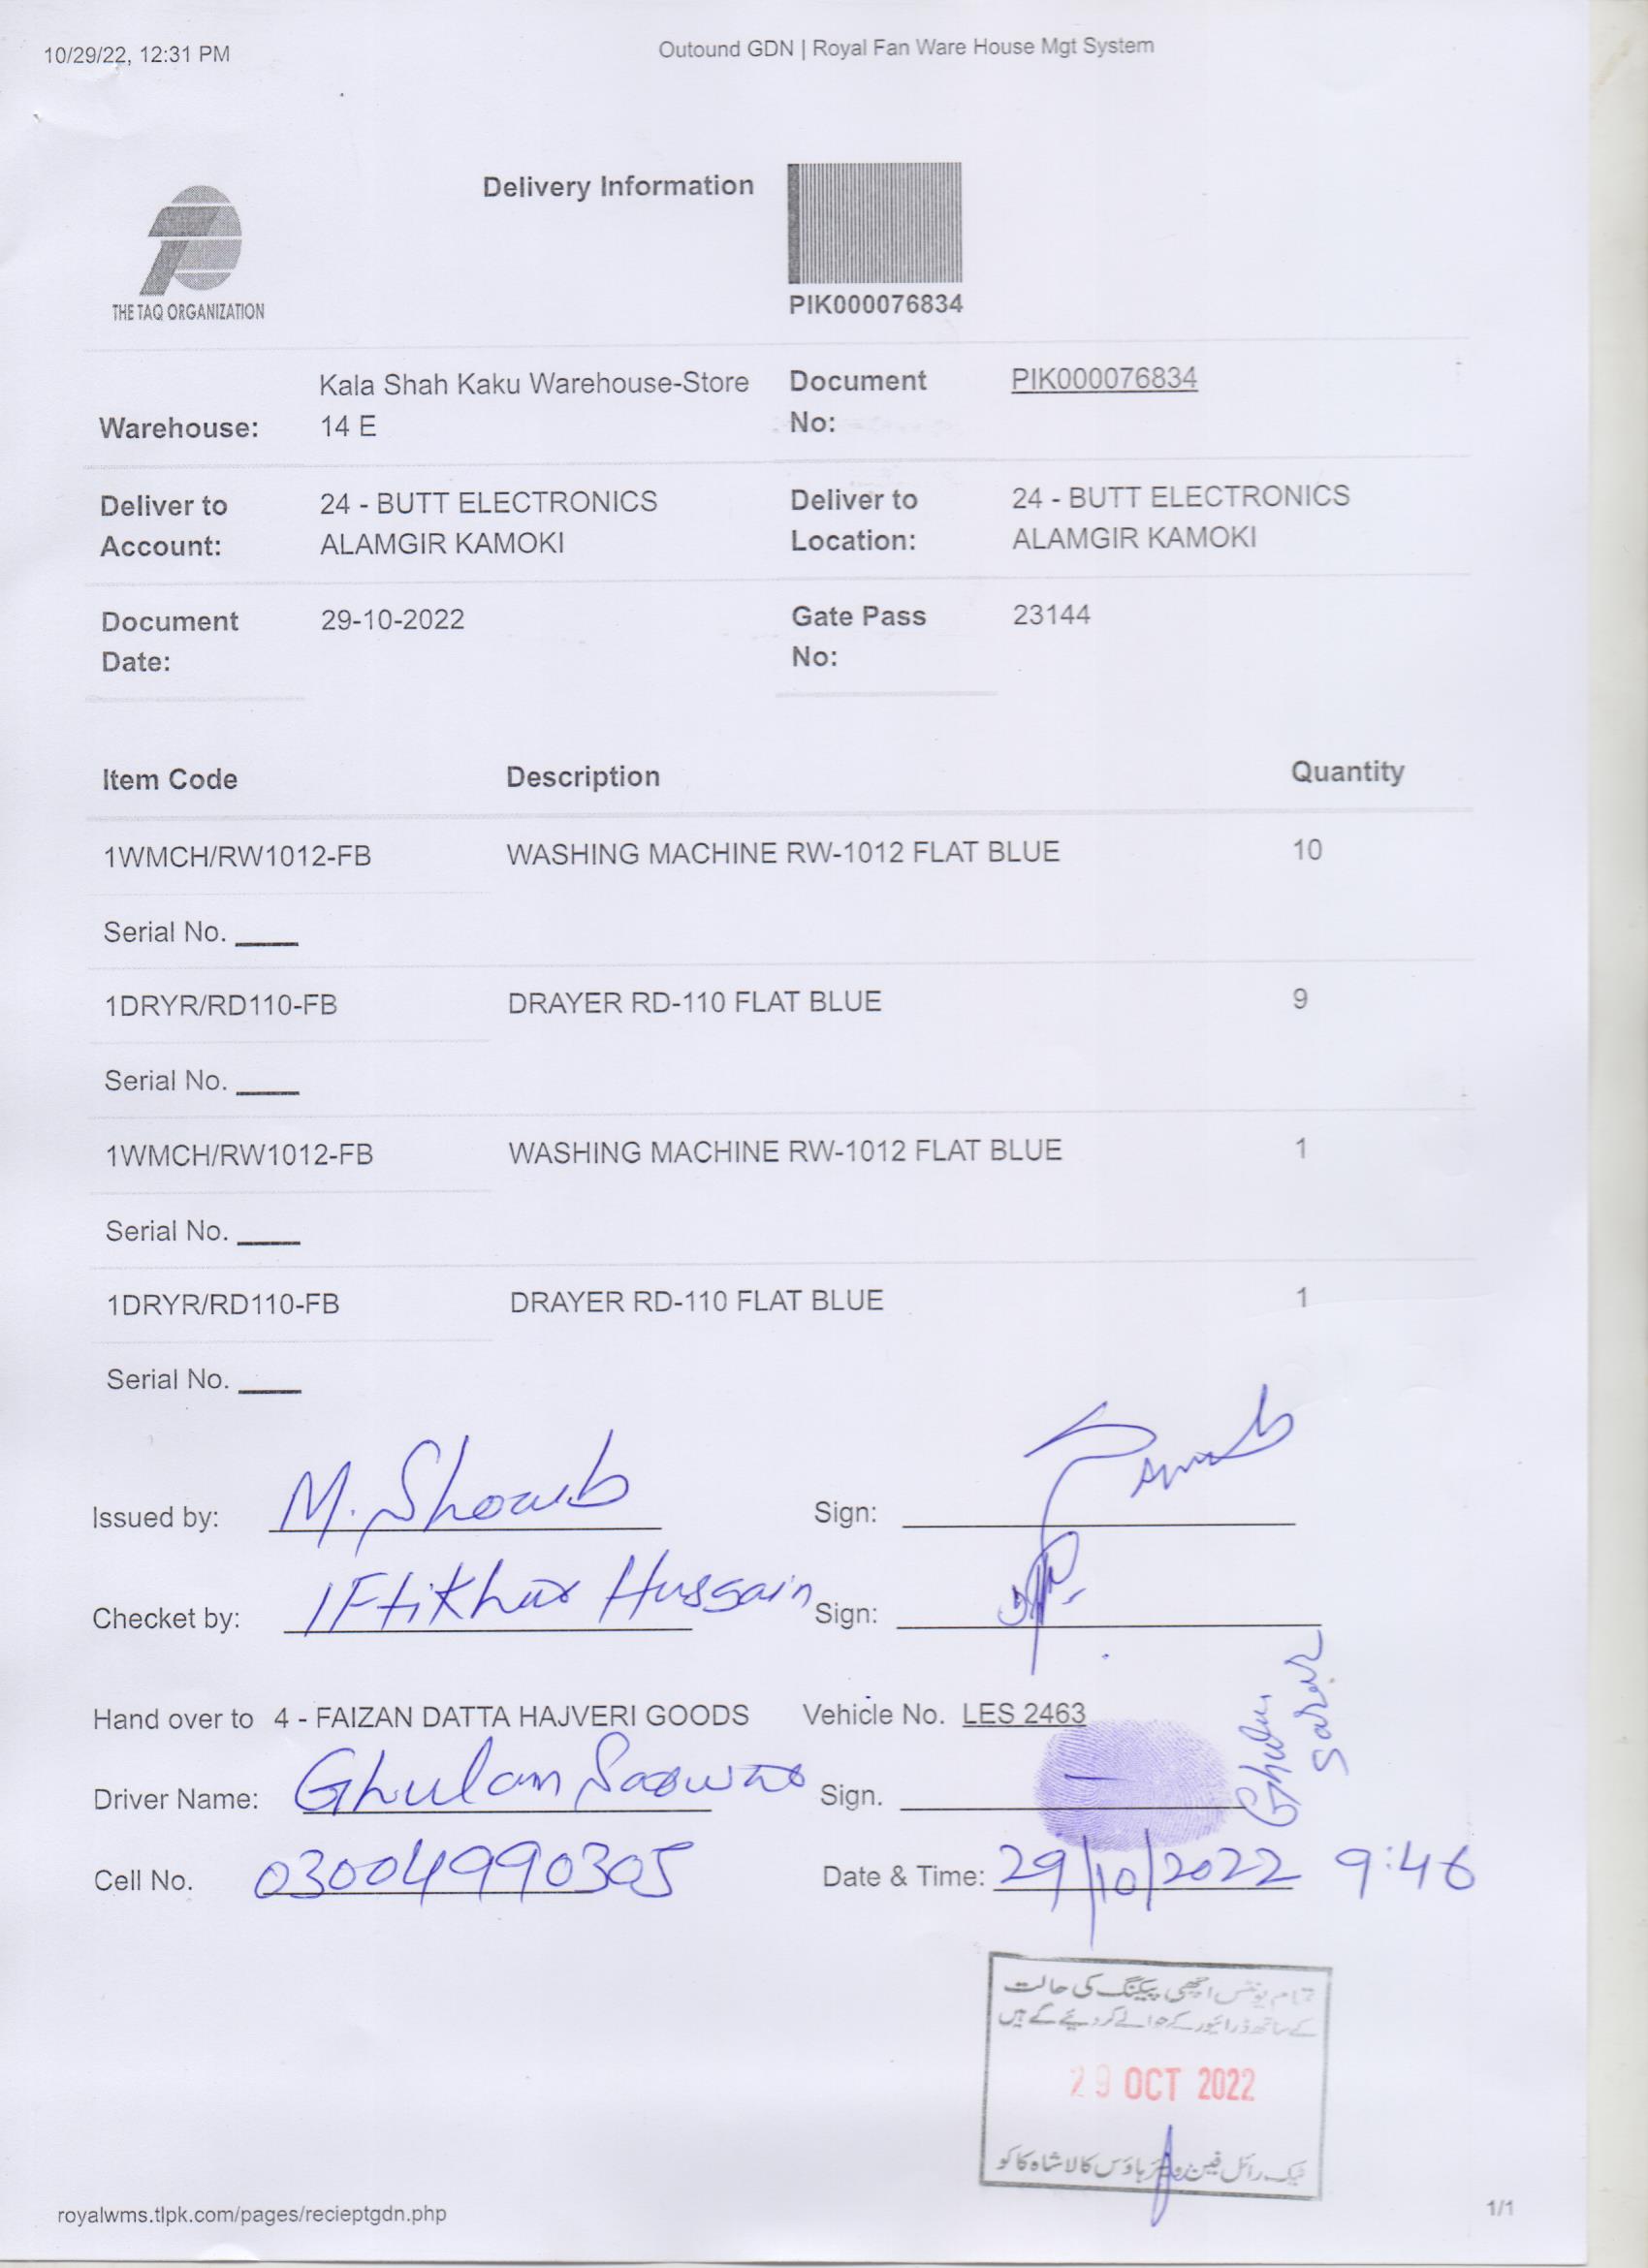 10/29/22, 12:31 PM
Outound GDN | Royal Fan Ware House Mgt System
THE TAQ ORGANIZATION
Delivery Information
PIK000076834
Warehouse: Kala Shah Kaku Warehouse-Store 14 E
Document No: PIK000076834
Deliver to Account: 24 - BUTT ELECTRONICS ALAMGIR KAMOKI
Deliver to Location: 24 - BUTT ELECTRONICS ALAMGIR KAMOKI
Document Date: 29-10-2022
Gate Pass No: 23144
Item Code Description Quantity
1WMCH/RW1012-FB WASHING MACHINE RW-1012 FLAT BLUE 10
Serial No. ____
1DRYR/RD110-FB DRAYER RD-110 FLAT BLUE 9
Serial No. ____
1WMCH/RW1012-FB WASHING MACHINE RW-1012 FLAT BLUE 1
Serial No. ____
1DRYR/RD110-FB DRAYER RD-110 FLAT BLUE 1
Serial No. ____
Issued by: M. Shoaib Sign:
Checket by: Iftikhar Hussain Sign:
Hand over to 4 - FAIZAN DATTA HAJVERI GOODS Vehicle No. LES 2463
Driver Name: Ghulam Sarwar Sign. Ghulam Sarwar
Cell No. 03004990305 Date & Time: 29/10/2022 9:46
تمام یونٹس اچھی پیکنگ کی حالت
کے ساتھ ڈرائیور کے حوالے کر دیئے گے ہیں
29 OCT 2022
ٹیک رائل فین ویئر ہاؤس کالا شاہ کاکو
royalwms.tlpk.com/pages/recieptgdn.php
1/1